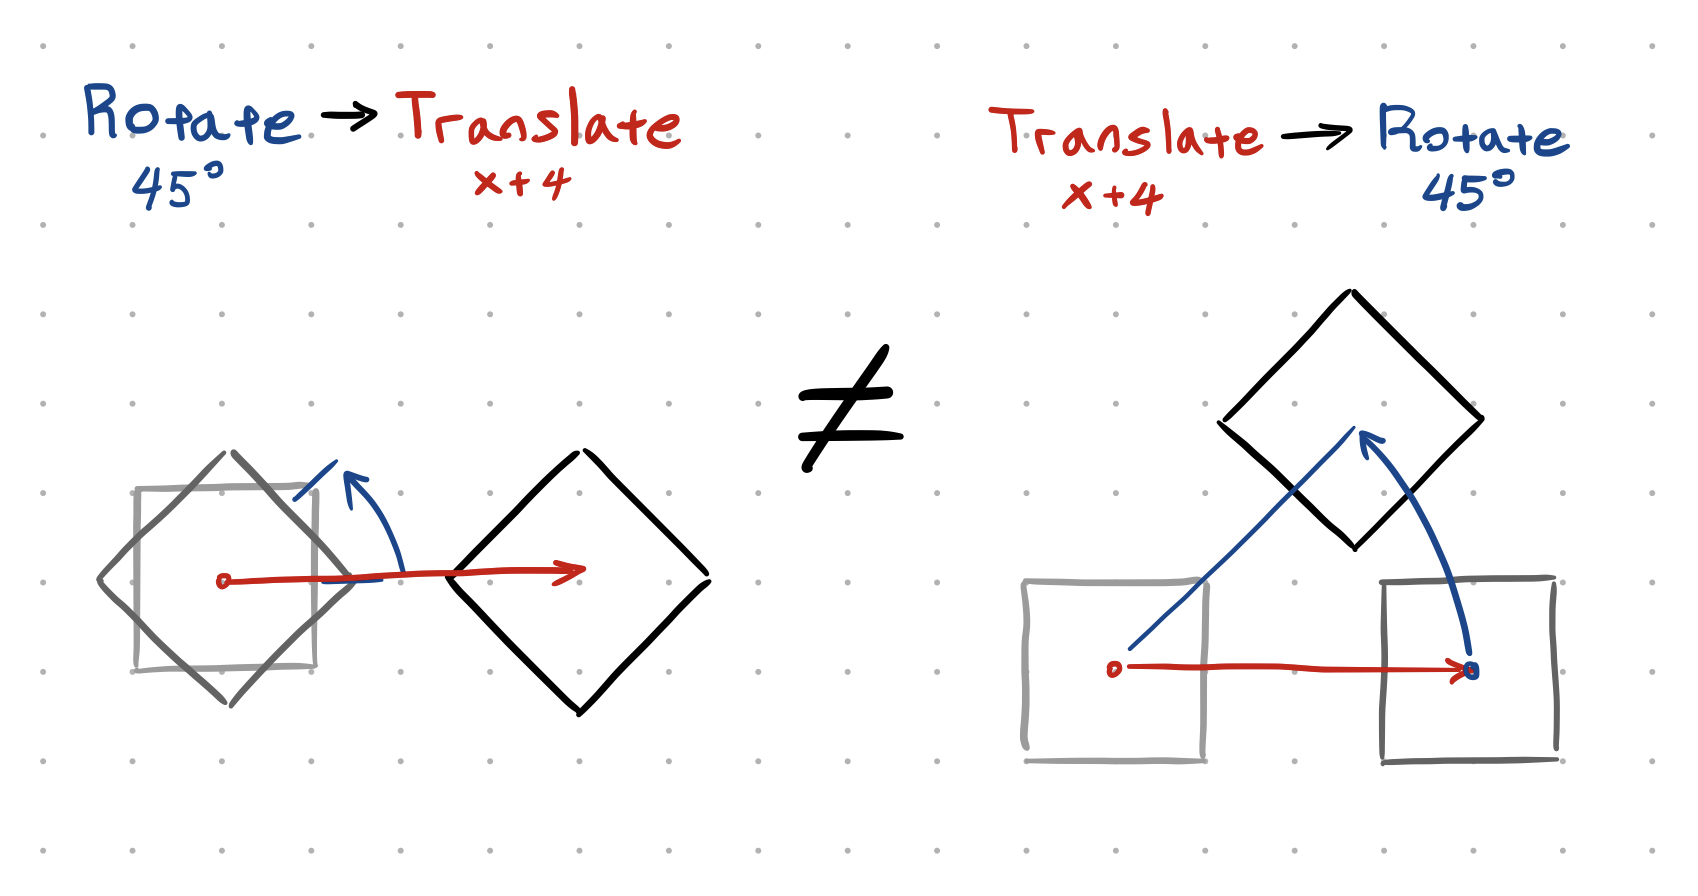 Rotate → Translate
45° x+4
≠
Translate → Rotate
x+4 45°